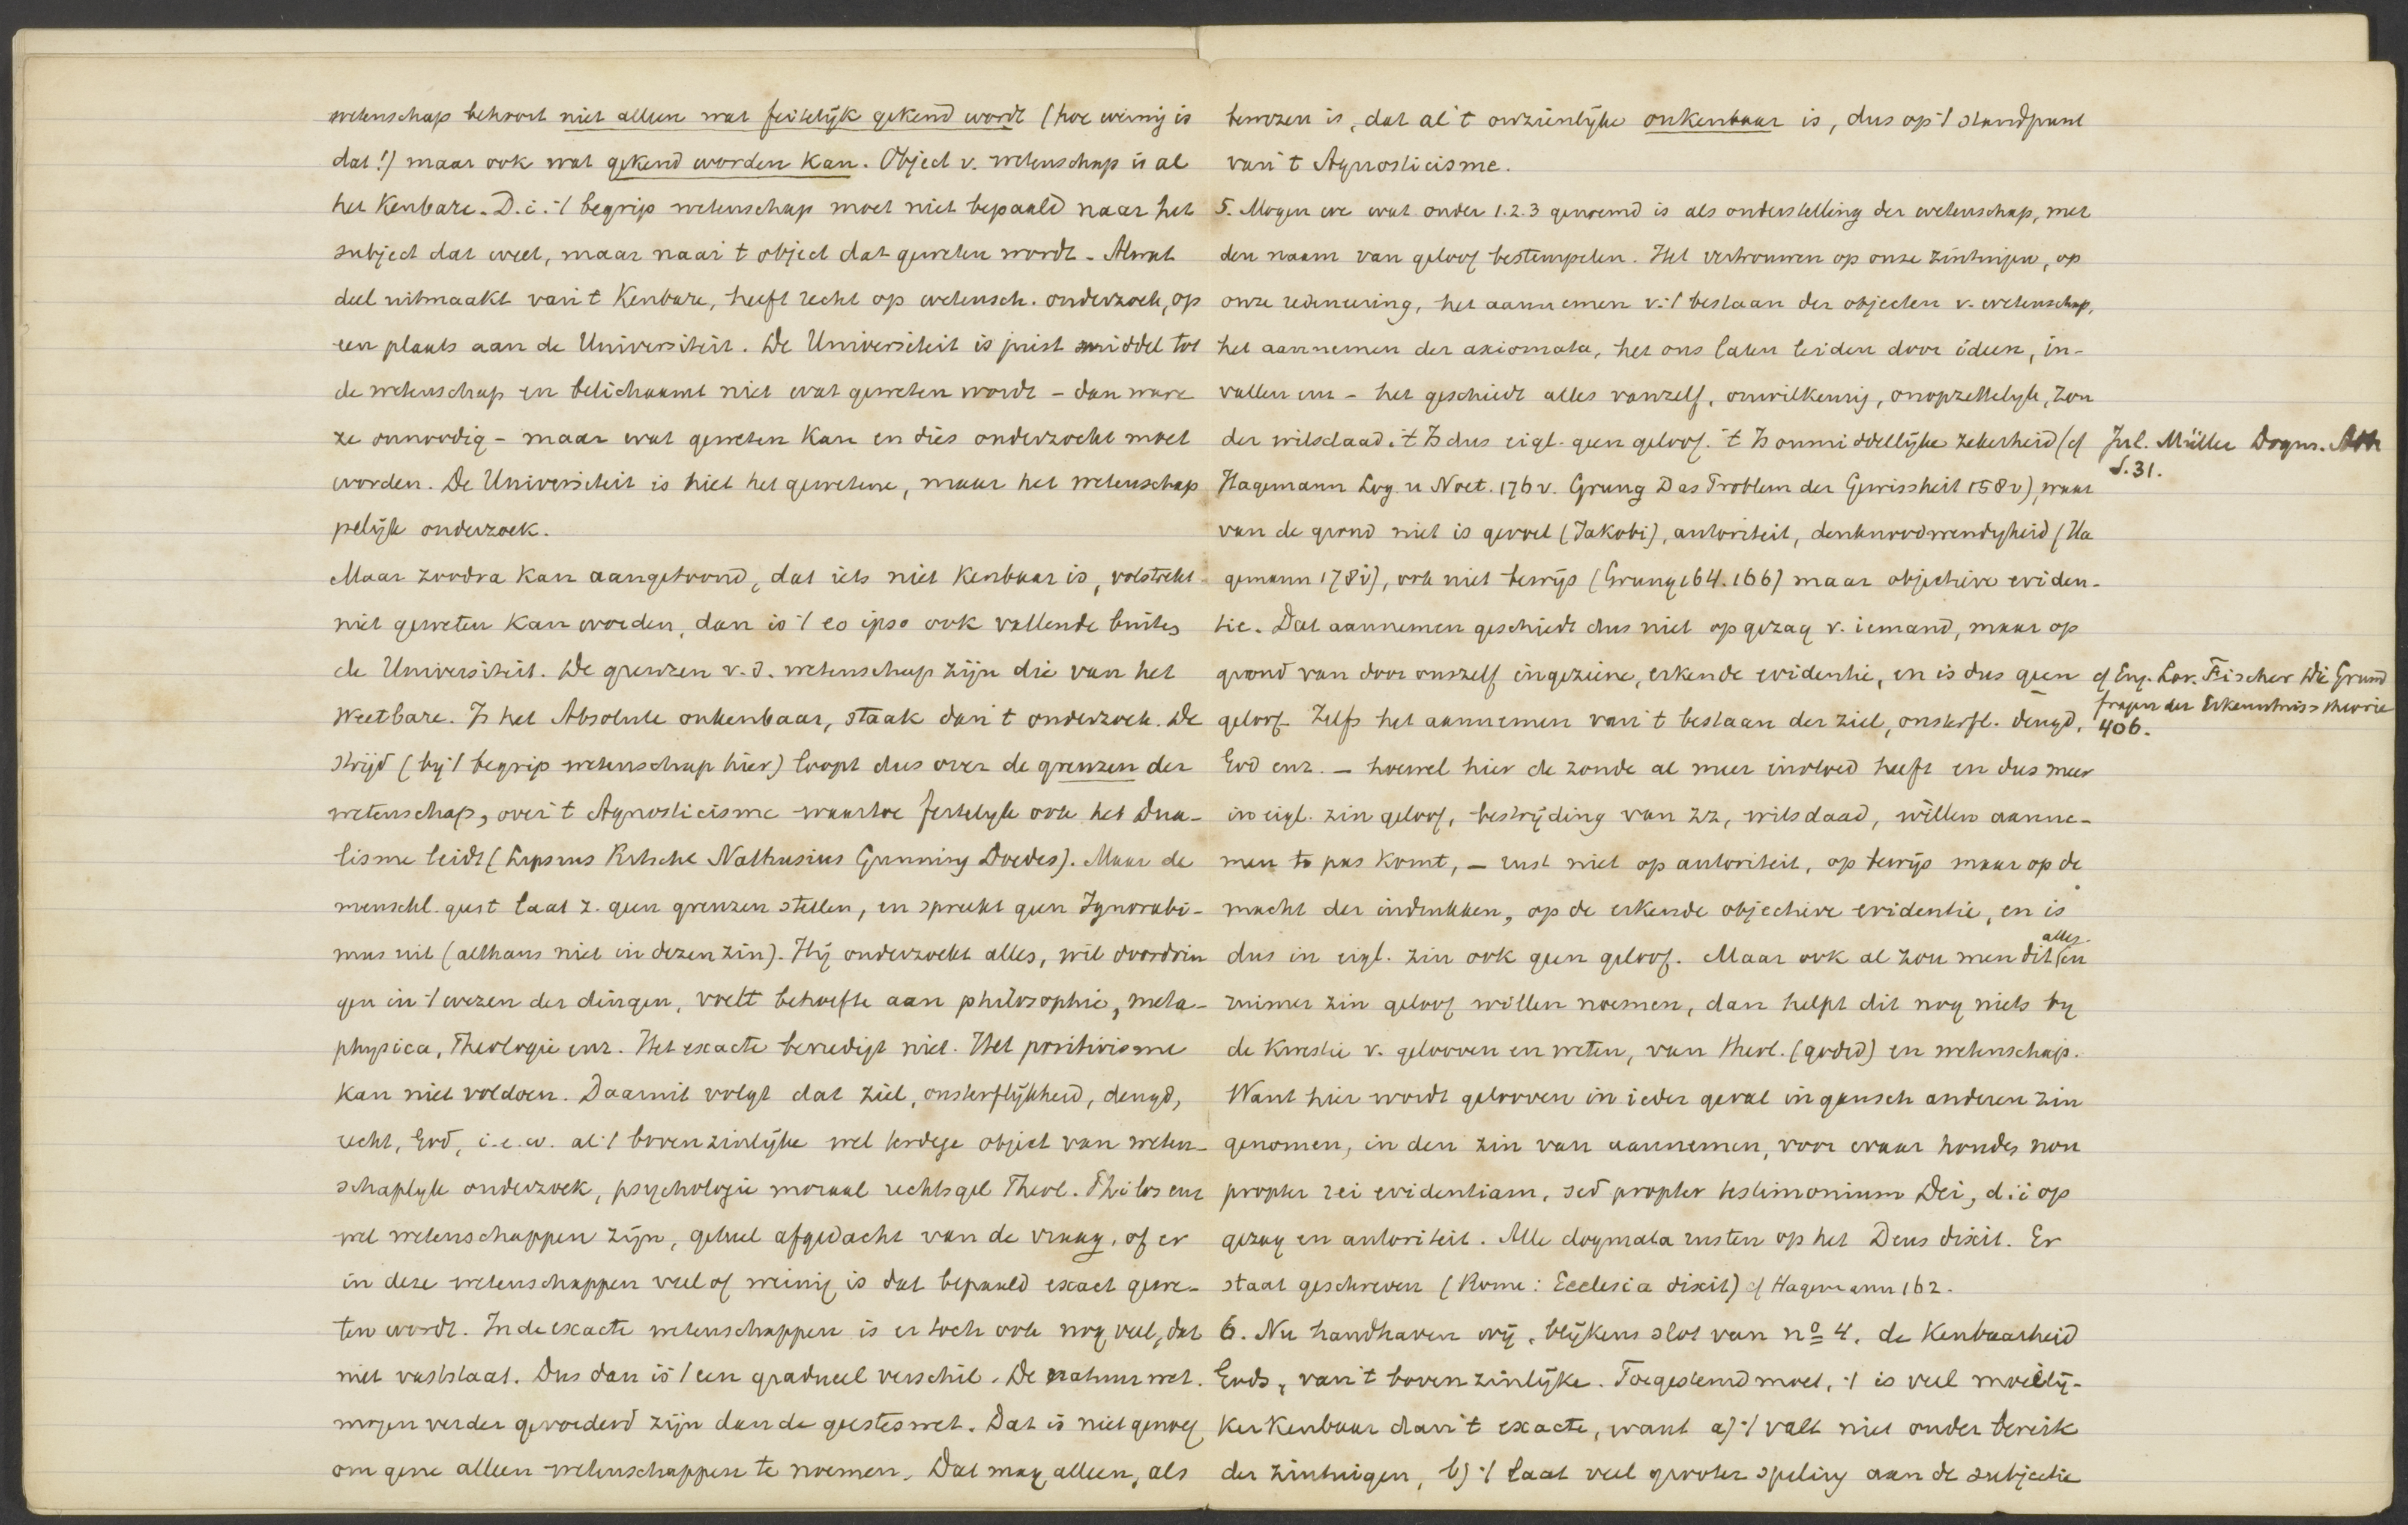 wetenschap behoort niet alleen wat feitelijk gekend wordt (hoe weinig is
dat!) maar ook wat gekend worden kan. Object v. wetenschap is al
het kenbare. D.i. 't begrip wetenschap moet niet bepaald naar het
subject dat weet, maar naar 't object dat geweten wordt. Alwat
deel uitmaakt van 't kenbare, heeft recht op wetensch. onderzoek, op
een plaats aan de Universiteit. De Universiteit is juist middel tot
de wetenschap en belichaamt niet wat geweten wordt – dan ware
ze onnoodig – maar wat geweten kan en dies onderzocht moet
worden. De Universiteit is niet het gewetene, maar het wetenschap
pelijk onderzoek.
Maar zoodra kan aangetoond, dat iets niet kenbaar is, volstrekt
niet geweten kan worden, dan is 't eo ipso ook vallende buiten
de Universiteit. De grenzen v.d. wetenschap zijn die van het
weetbare. Is het Absolute onkenbaar, staak dan 't onderzoek. De
strijd (bij 't begrip wetenschap hier) loopt dus over de grenzen der
wetenschap, over 't Agnosticisme waartoe feitelijk ook het Dua-
lisme leidt (Lipsius Ritschl Nathusius Gunning Doedes). Maar de
menschl. geest laat z. geen grenzen stellen, en spreekt geen Ignorabi-
mus uit (althans niet in dezen zin). Hij onderzoekt alles, wil doordrin
gen in 't wezen der dingen, voelt behoefte aan philosophie, meta-
physica, Theologie enz. Het exacte bevredigt niet. Het positivisme
kan niet voldoen. Daaruit volgt dat ziel, onsterflijkheid, deugd,
recht, God, i.e.w. al 't bovenzinlijke wel terdege object van weten-
schaplijk onderzoek, psychologie moraal rechtsgel Theol. Philos enz
wel wetenschappen zijn, geheel afgedacht van de vraag, of er
in deze wetenschappen veel of weinig is dat bepaald exact gewe-
ten wordt. In de exacte wetenschappen is er toch ook nog veel, dat
niet vaststaat. Dus dan is 't een gradueel verschil. De natuurwet.
mogen verder gevorderd zijn dan de geesteswet. Dat is niet genoeg
om gene alleen wetenschappen te noemen. Dat mag alleen, als
bewezen is, dat al 't onzienlijke onkenbaar is, dus op 't standpunt
van 't Agnosticisme.
5. Mogen we wat onder 1.2.3 genoemd is als onderstelling der wetenschap, met
den naam van geloof bestempelen. Het vertrouwen op onze zintuigen, op
onze redeneering, het aannemen v. 't bestaan der objecten v. wetenschap,
het aannemen der axiomata, het ons laten leiden door ideen, in-
vallen enz – het geschiedt alles vanzelf, onwilkeurig, onopzettelijk, zon
der wilsdaad. 't Is dus eigl. geen geloof. 't Is onmiddellijke zekerheid (cf Jul. Müller Dogm.
S. 31.
Hagemann Log. u Noet. 176 v. Grung Das Problem der Gewissheit 158 v), waar
van de grond niet is gevoel (Jakobi), autoriteit, denknoodwendigheid (Ha
gemann 178 v), ook niet bewijs (Grung 164.166) maar objectieve eviden-
tie. Dat aannemen geschiedt dus niet op gezag v. iemand, maar op
grond van door onszelf ingeziene, erkende evidentie, en is dus geen cf Eng. Lor. Fischer Die Grund
fragen der Erkenntnisstheorie
geloof. Zelfs het aannemen van 't bestaan der ziel, onsterfl. deugd, 406.
God enz. – hoewel hier de zonde al meer invloed heeft en dus meer
in eigl. zin geloof, bestrijding van zz, wilsdaad, willen aanne-
men te pas komt, – rust niet op autoriteit, op bewijs maar op de
macht der indrukken, op de erkende objectieve evidentie, en is
dus in eigl. zin ook geen geloof. Maar ook al zou men dit alles in
ruimer zin geloof willen noemen, dan helpt dit nog niets bij
de kwestie v. gelooven en weten, van theol. (godgd) en wetenschap.
Want hier wordt gelooven in ieder geval in gansch anderen zin
genomen, in den zin van aannemen, voor waar houden non
propter rei evidentiam, sed propter testimonium Dei, d.i op
gezag en autoriteit. Alle dogmata rusten op het Deus dixit. Er
staat geschreven (Rome: Ecclesia dixit) cf Hagemann 162.
6. Nu handhaven wij, blijkens slot van no 4, de kenbaarheid
Gods, van 't bovenzinlijke. Toegestemd moet, 't is veel moeilij-
ker kenbaar dan 't exacte, want a) 't valt niet onder bereik
der zintuigen, b) 't laat veel grooter speling aan de subjectie